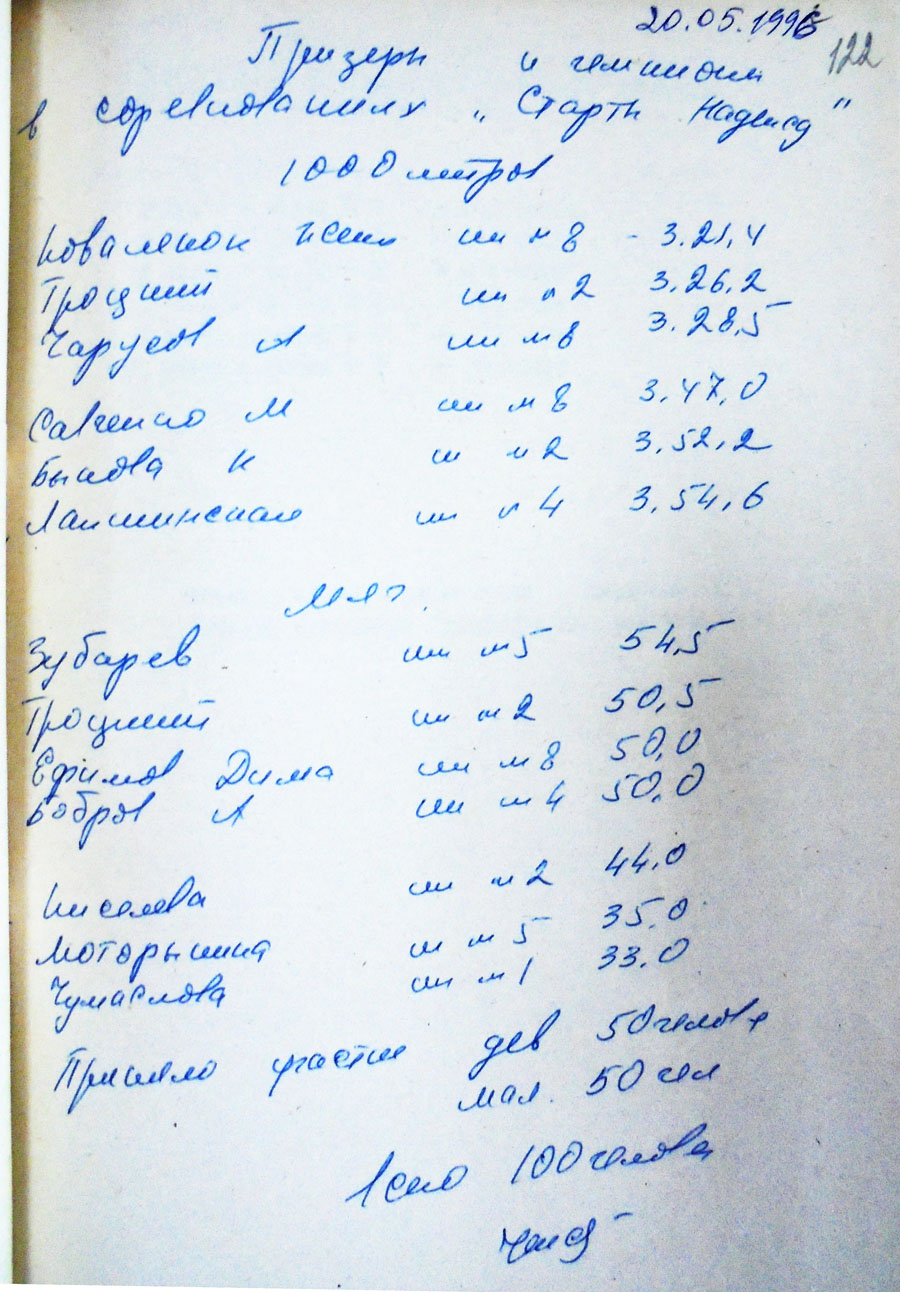 20.05.1996
122
Призеры и чемпионы
в соревнованиях „Старты Надежд"
1000 метров
Коваленок Женя шк № 8 - 3.21,4
Троцкий шк № 2 3.26,2
Чарусов А шк № 8 3.28,5
Савченко М шк № 8 3.47,0
Быкова К ш № 2 3.52,2
Лапшинская шк № 4 3.54,6
Мяч.
Зубарев шк № 5 54,5
Троцкий шк № 2 50,5
Ефимов Дима шк № 8 50,0
Бобров А шк № 4 50,0
Киселева шк № 2 44,0
Моторыкина ш № 5 35,0
Чумаслова шк № 1 33,0
Приняло участие дев 50 челов
мал. 50 чел
Всего 100 человек